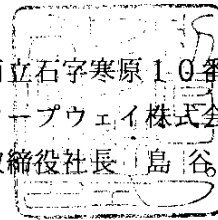 立石字寒原10番
ープウェイ株式会
締役社長 島谷